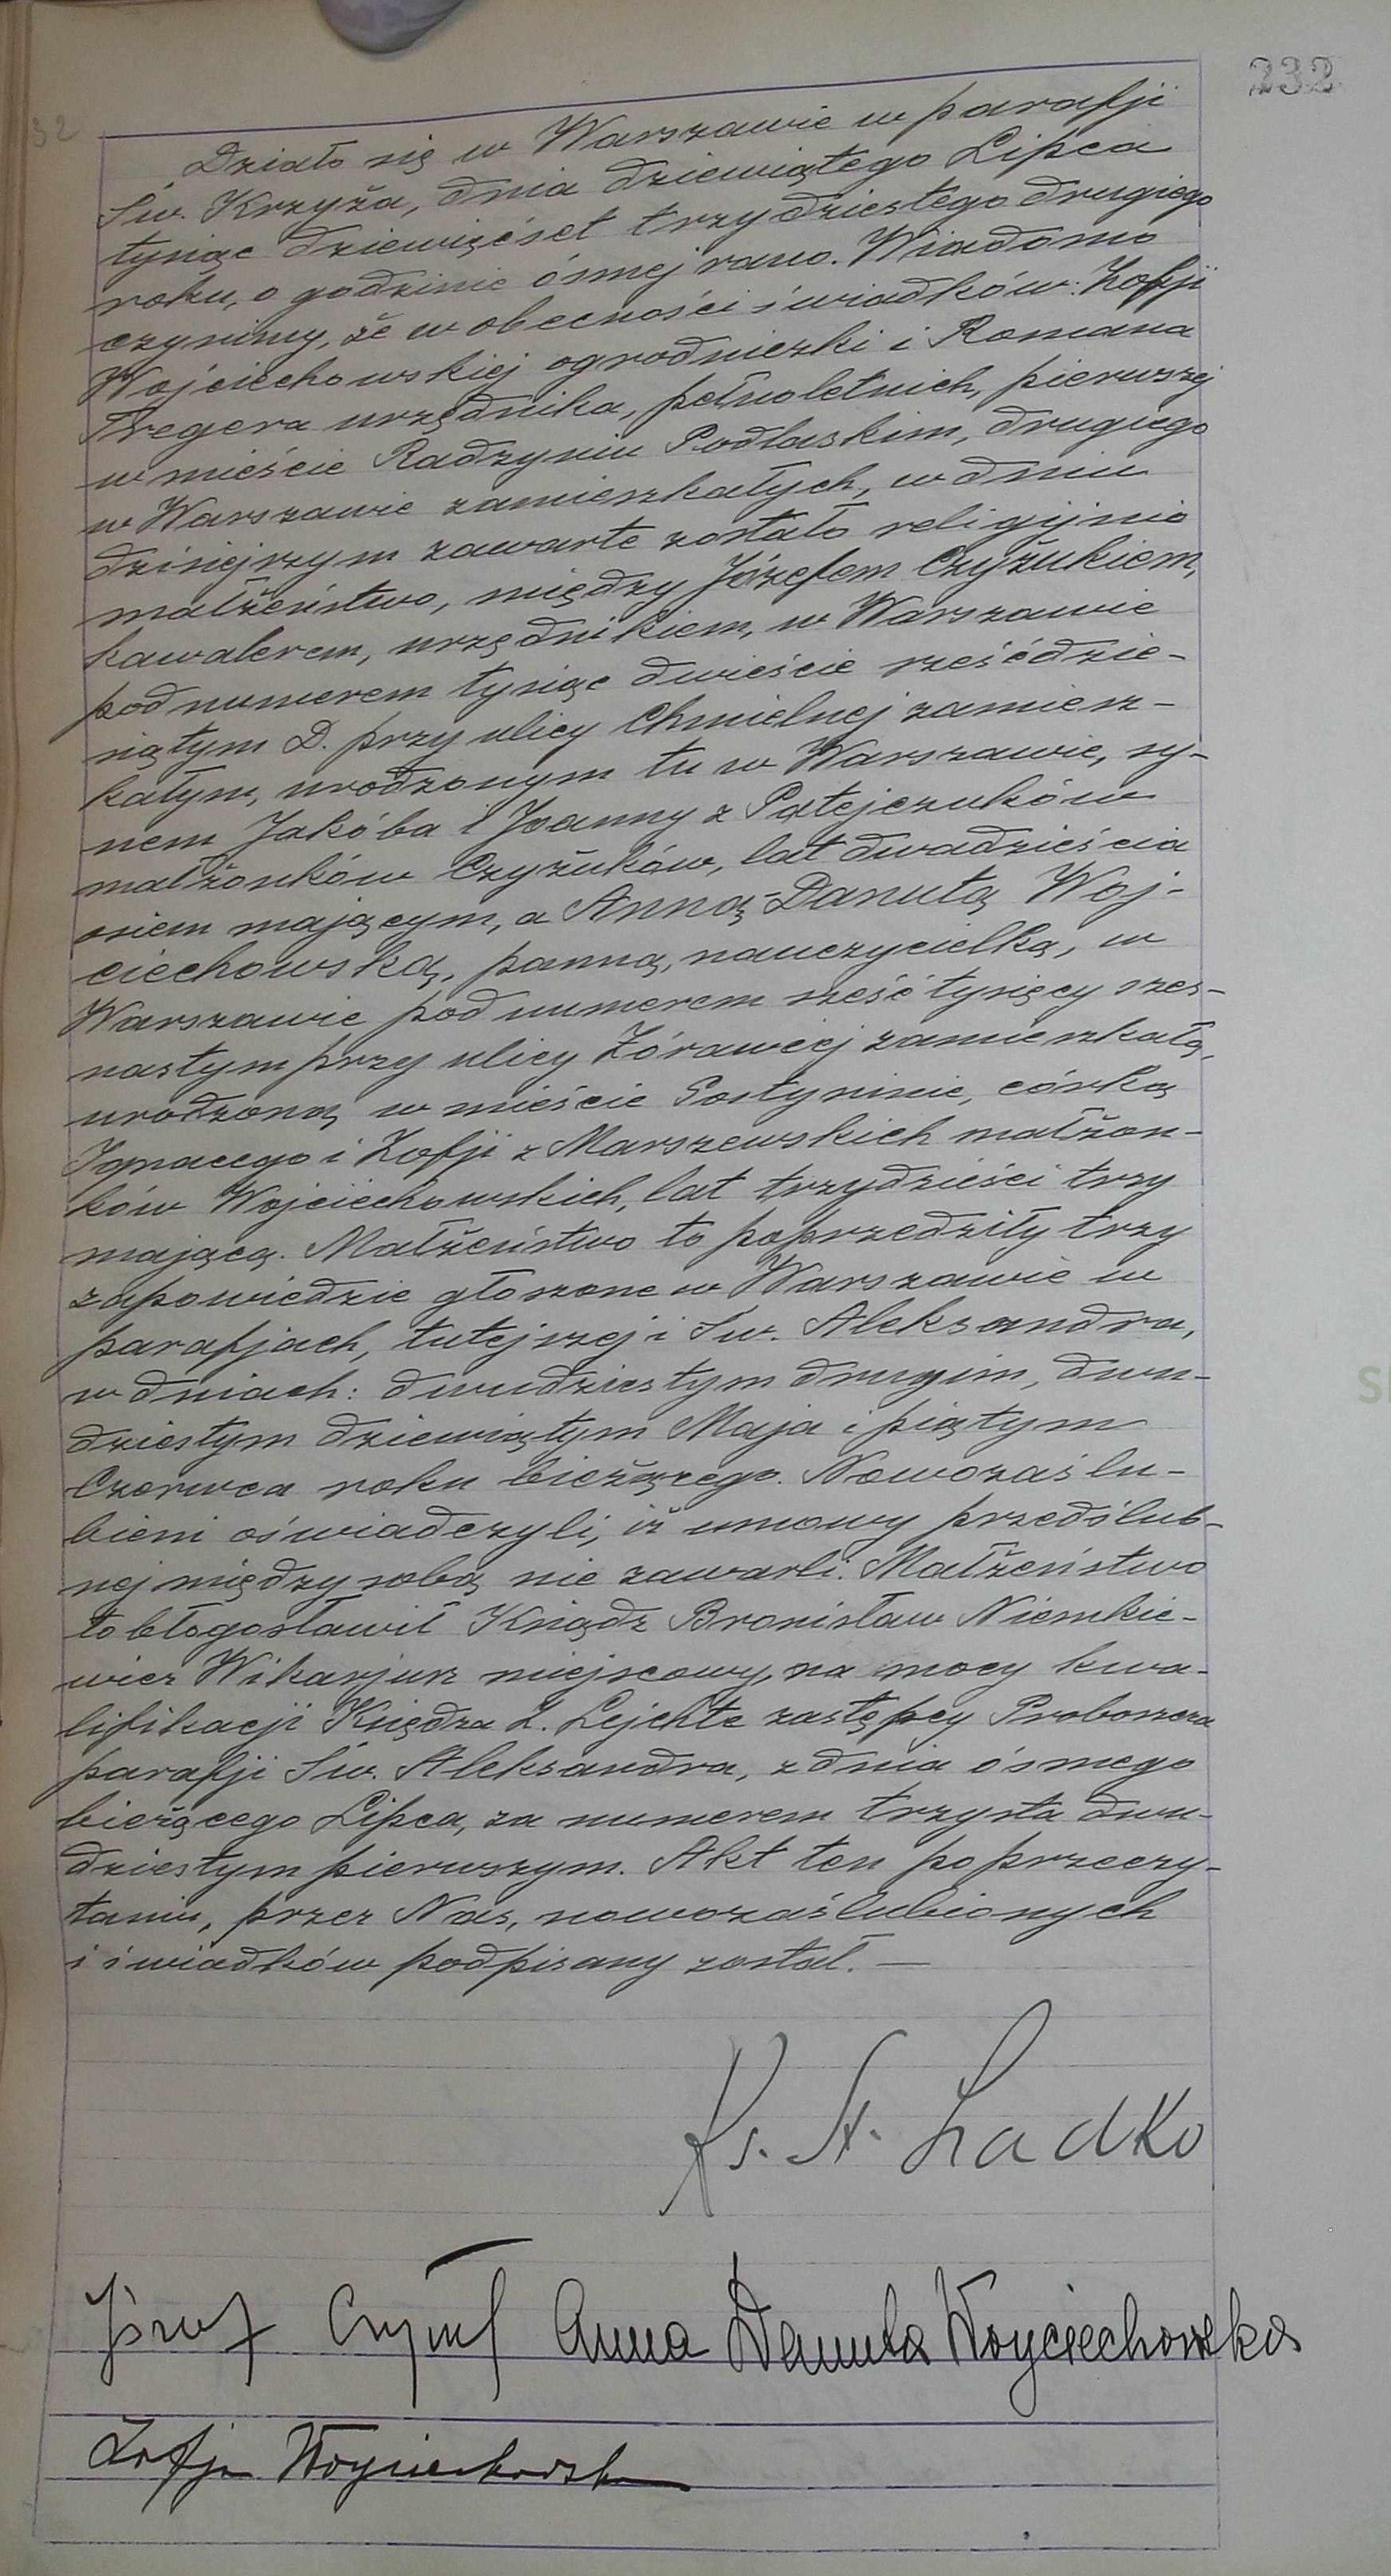 232
32
Działo się w Warszawie w parafji
Św. Krzyża, dnia dziewiątego Lipca
tysiąc dziewięćset trzydziestego drugiego
roku, o godzinie ósmej rano. Wiadomo
czynimy, że w obecności świadków: Zofji
Wojciechowskiej ogrodniczki i Romana
Tregera urzędnika, pełnoletnich, pierwszej
w mieście Radzyniu Podlaskim, drugiego
w Warszawie zamieszkałych, w dniu
dzisiejszym zawarte zostało religijnie
małżeństwo, między Józefem Czyżukiem,
kawalerem, urzędnikiem, w Warszawie
pod numerem tysiąc dwieście sześćdzie-
siątym D. przy ulicy Chmielnej zamiesz-
kałym, urodzonym tu w Warszawie, sy-
nem Jakóba i Joanny z Patejczuków
małżonków Czyżuków, lat dwadzieścia
osiem mającym, a Anną-Danutą Woj-
ciechowską, panną, nauczycielką, w
Warszawie pod numerem sześć tysięcy szes-
nastym przy ulicy Żórawiej zamieszkałą,
urodzoną w mieście Gostyninie, córką
Ignacego i Zofji z Marszewskich małżon-
ków Wojciechowskich, lat trzydzieści trzy
mającą. Małżeństwo to poprzedziły trzy
zapowiedzie głoszone w Warszawie w
parafjach, tutejszej i Św. Aleksandra,
w dniach: dwudziestym drugim, dwu-
dziestym dziewiątym Maja i piątym
Czerwca roku bieżącego. Nowozaślu-
bieni oświadczyli, iż umowy przedślub-
nej między sobą nie zawarli. Małżeństwo
to błogosławił Ksiądz Bronisław Niemkie-
wicz Wikarjusz miejscowy, na mocy kwa-
lifikacji Księdza L. Lejchte zastępcy Proboszcza
parafji Św. Aleksandra, z dnia ósmego
bieżącego Lipca, za numerem trzysta dwu-
dziestym pierwszym. Akt ten po przeczy-
taniu, przez Nas, nowozaślubionych
i świadków podpisany został. —
Ks. St. Ladko
Józef Czyżuk Anna Danuta Woyciechowska
Zofja Woyciechowska